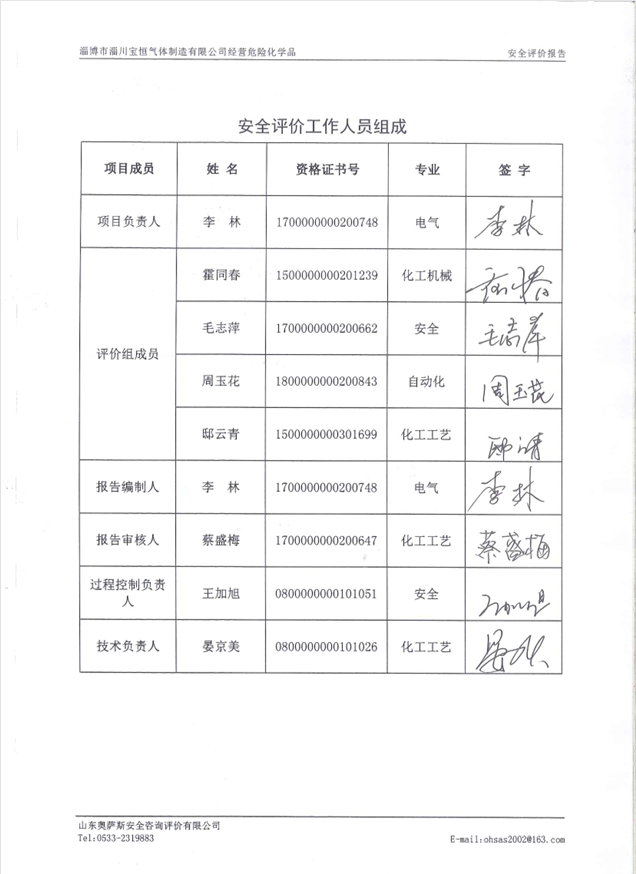 淄博市淄川宝恒气体制造有限公司经营危险化学品 安全评价报告
安全评价工作人员组成
项目成员 姓 名 资格证书号 专业 签 字
项目负责人 李 林 1700000000200748 电气 李林
评价组成员 霍同春 1500000000201239 化工机械
毛志萍 1700000000200662 安全 毛志萍
周玉花 1800000000200843 自动化 周玉花
邸云青 1500000000301699 化工工艺
报告编制人 李 林 1700000000200748 电气 李林
报告审核人 蔡盛梅 1700000000200647 化工工艺 蔡盛梅
过程控制负责
人 王加旭 0800000000101051 安全
技术负责人 晏京美 0800000000101026 化工工艺
山东奥萨斯安全咨询评价有限公司
Tel:0533-2319883 E-mail:ohsas2002@163.com